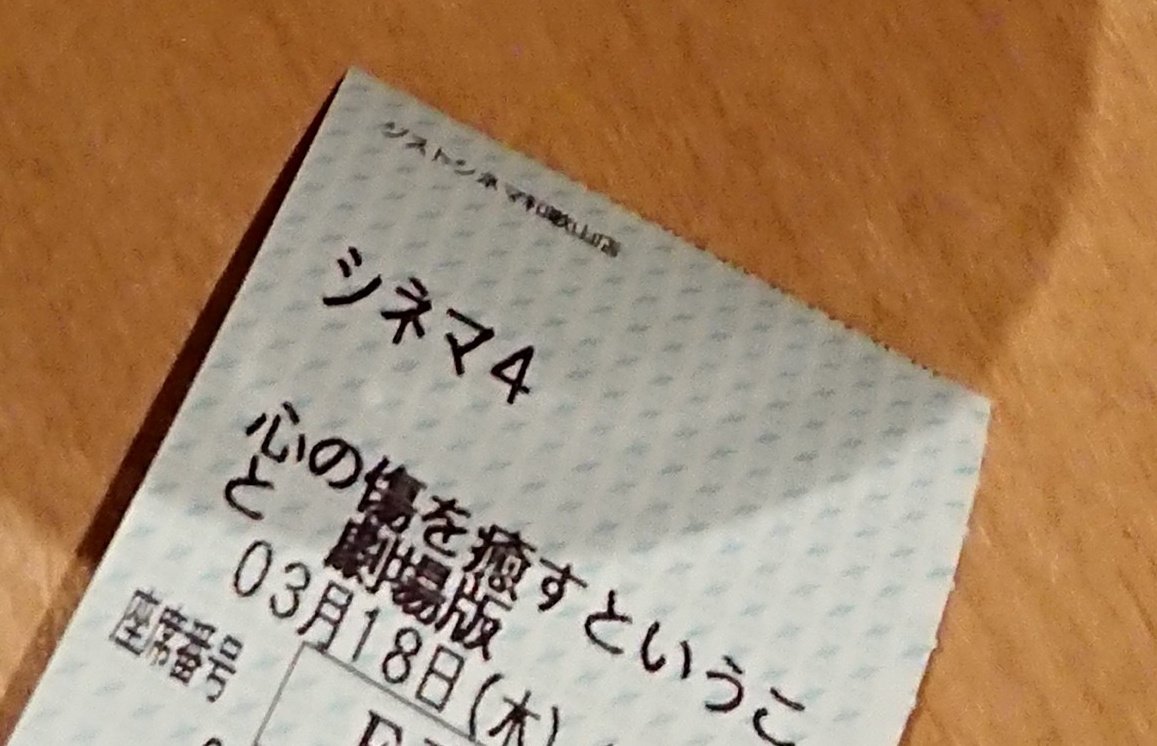 ジストシネマ和歌山店
シネマ4
心の傷を癒すというこ
と　劇場版
03月18日(木)
座席番号